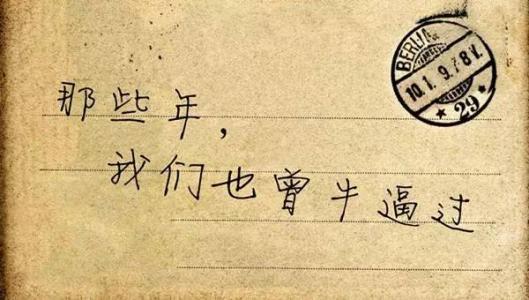 那些年,
我们也曾牛逼过
BERIJA
10.1.9.7-8V.
* 29 *